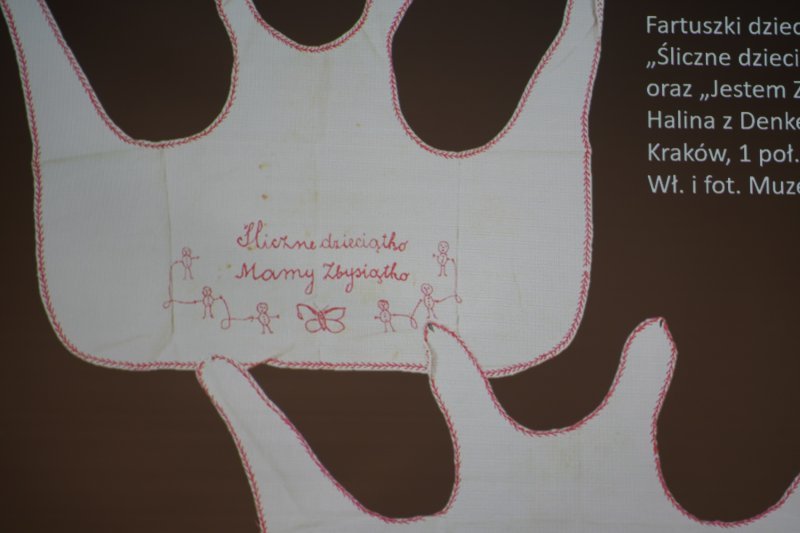 Fartuszki dziec
„Śliczne dzieci
oraz „Jestem Z
Halina z Denke
Kraków, 1 poł.
Wł. i fot. Muze
Śliczne dzieciątko
Mamy Zbysiątko